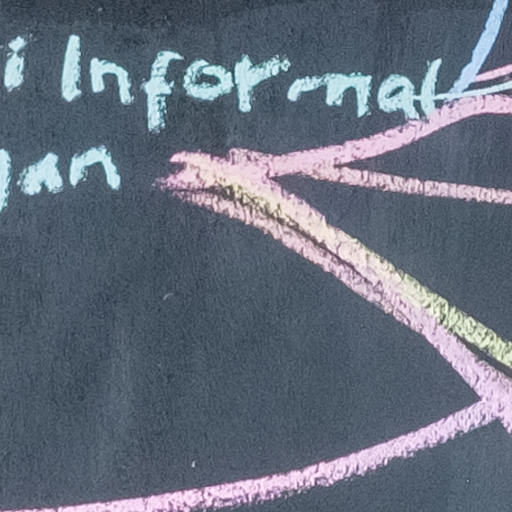 i Informal
an